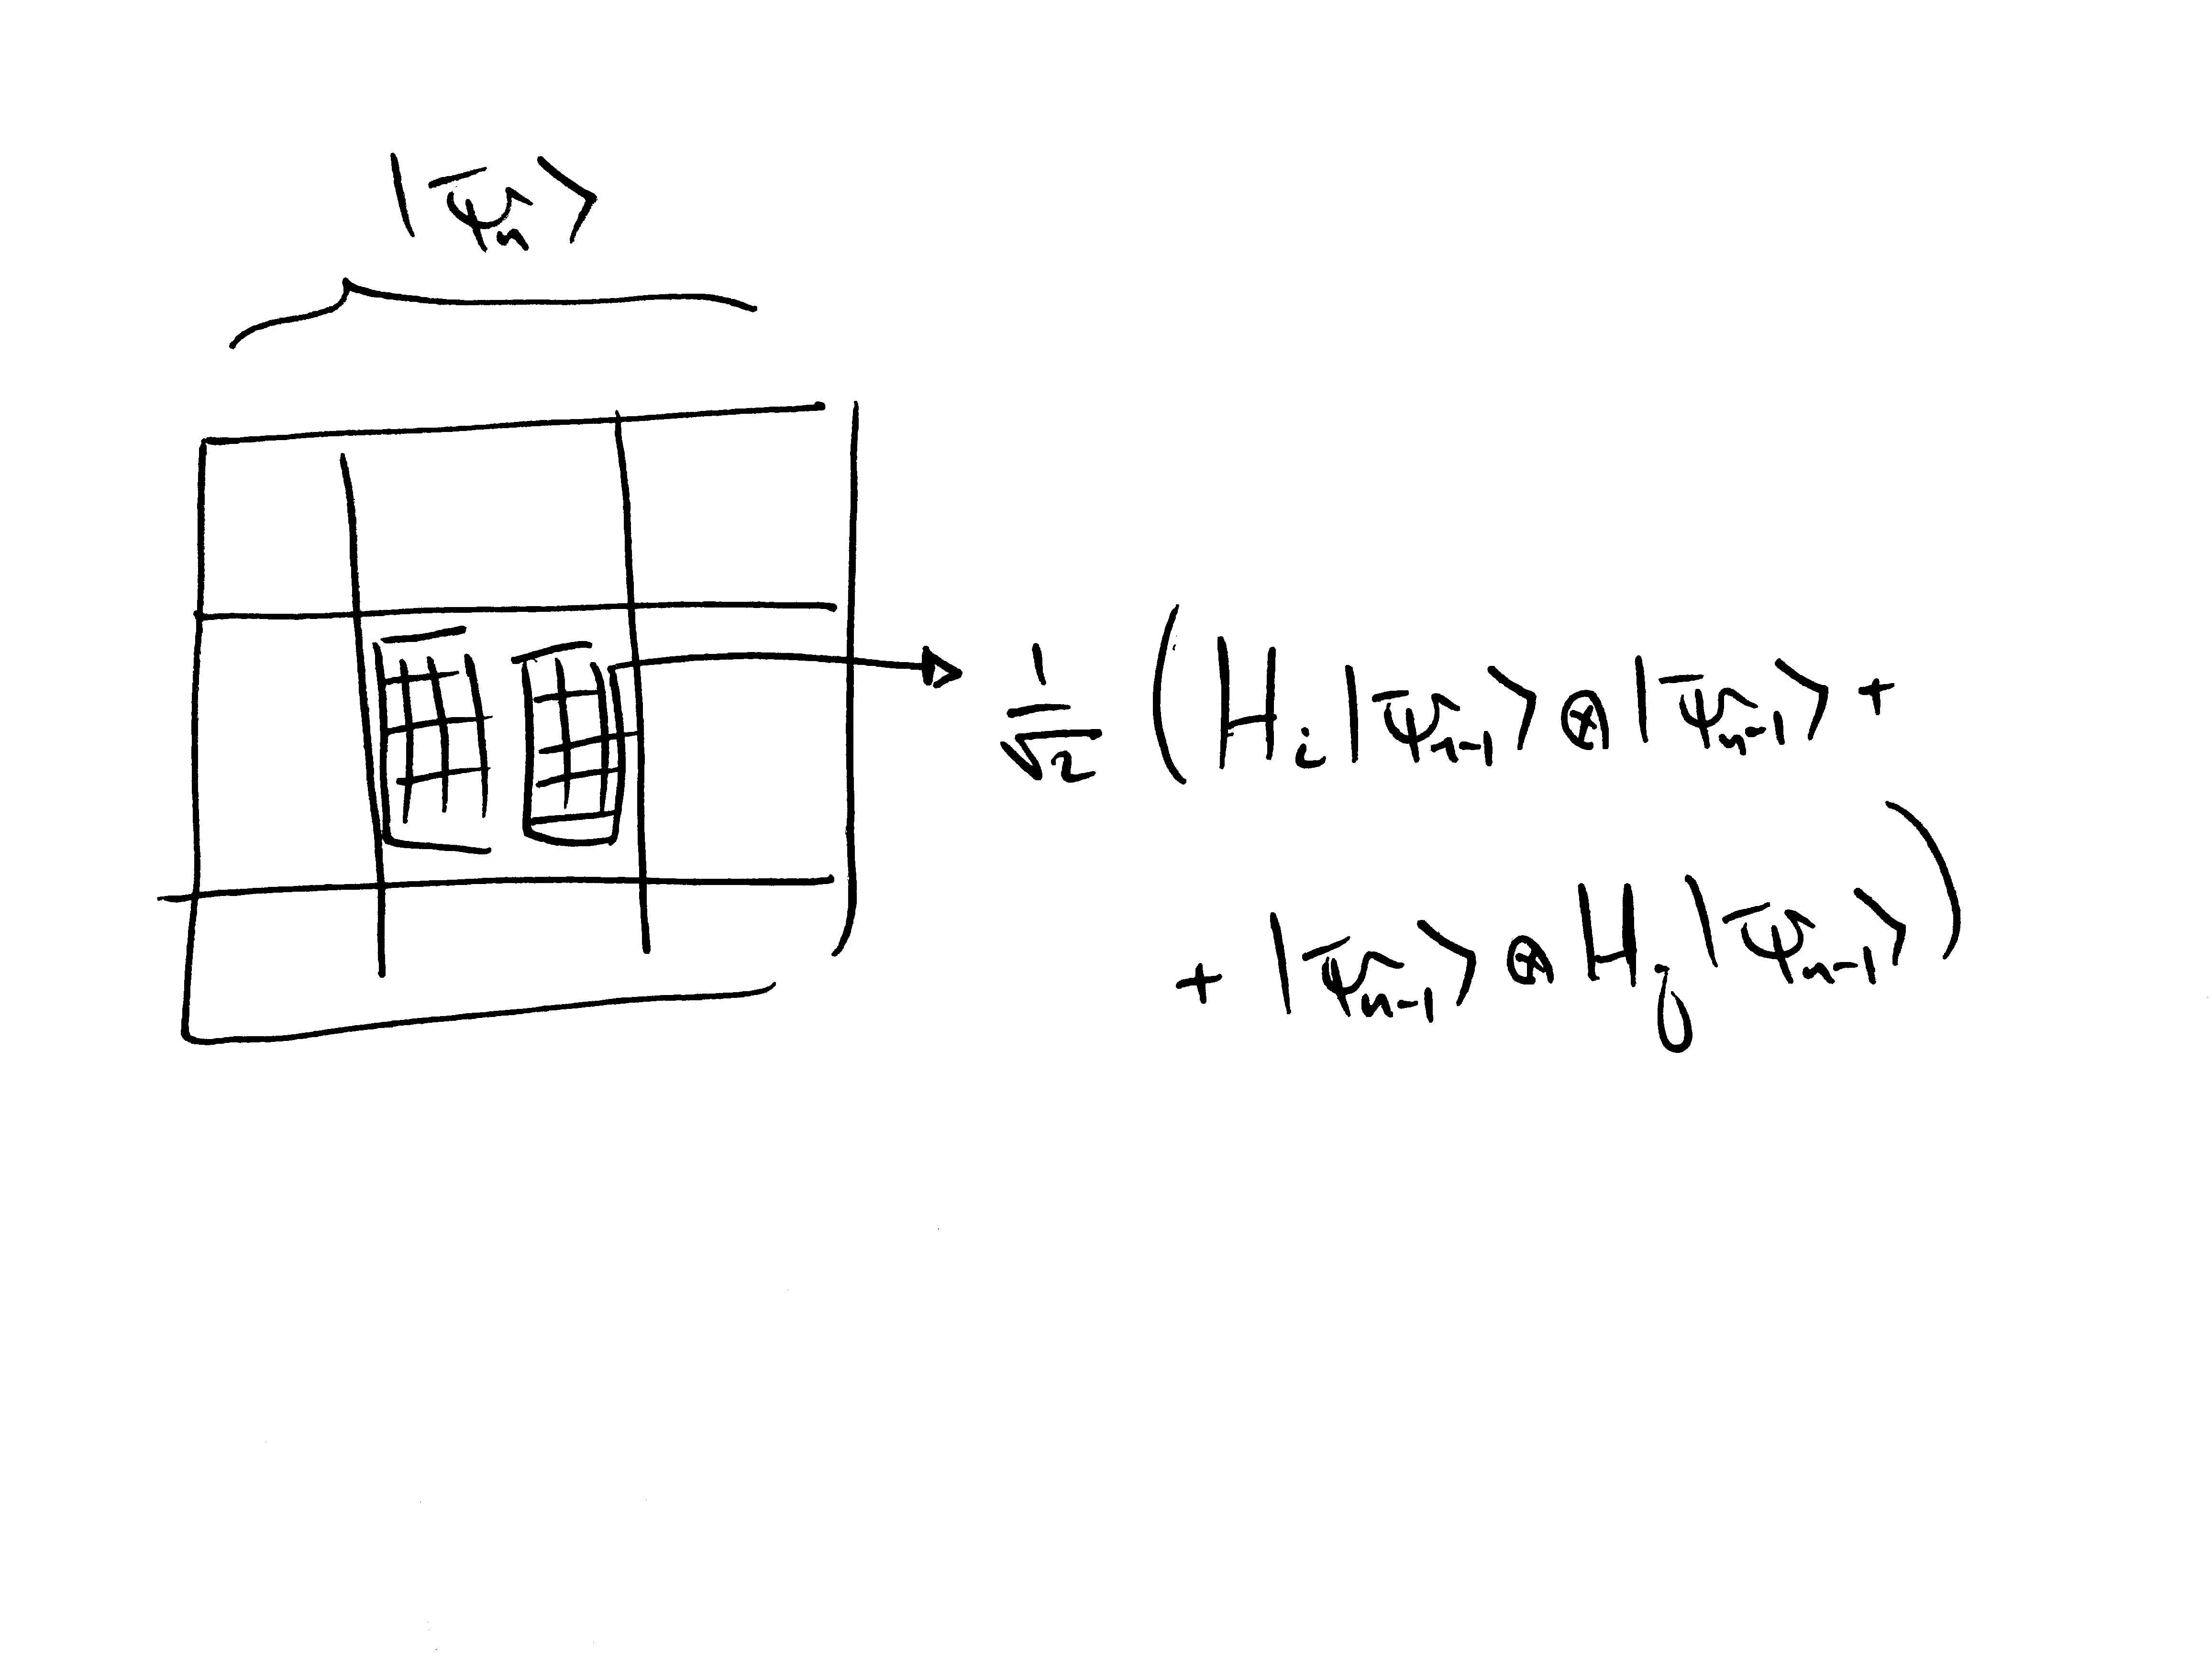 |Ψ̄ₙ⟩
1/√2 (Hᵢ|Ψ̄ₙ₋₁⟩ ⊗ |Ψ̄ₙ₋₁⟩ +
+ |Ψ̄ₙ₋₁⟩ ⊗ Hⱼ|Ψ̄ₙ₋₁⟩)